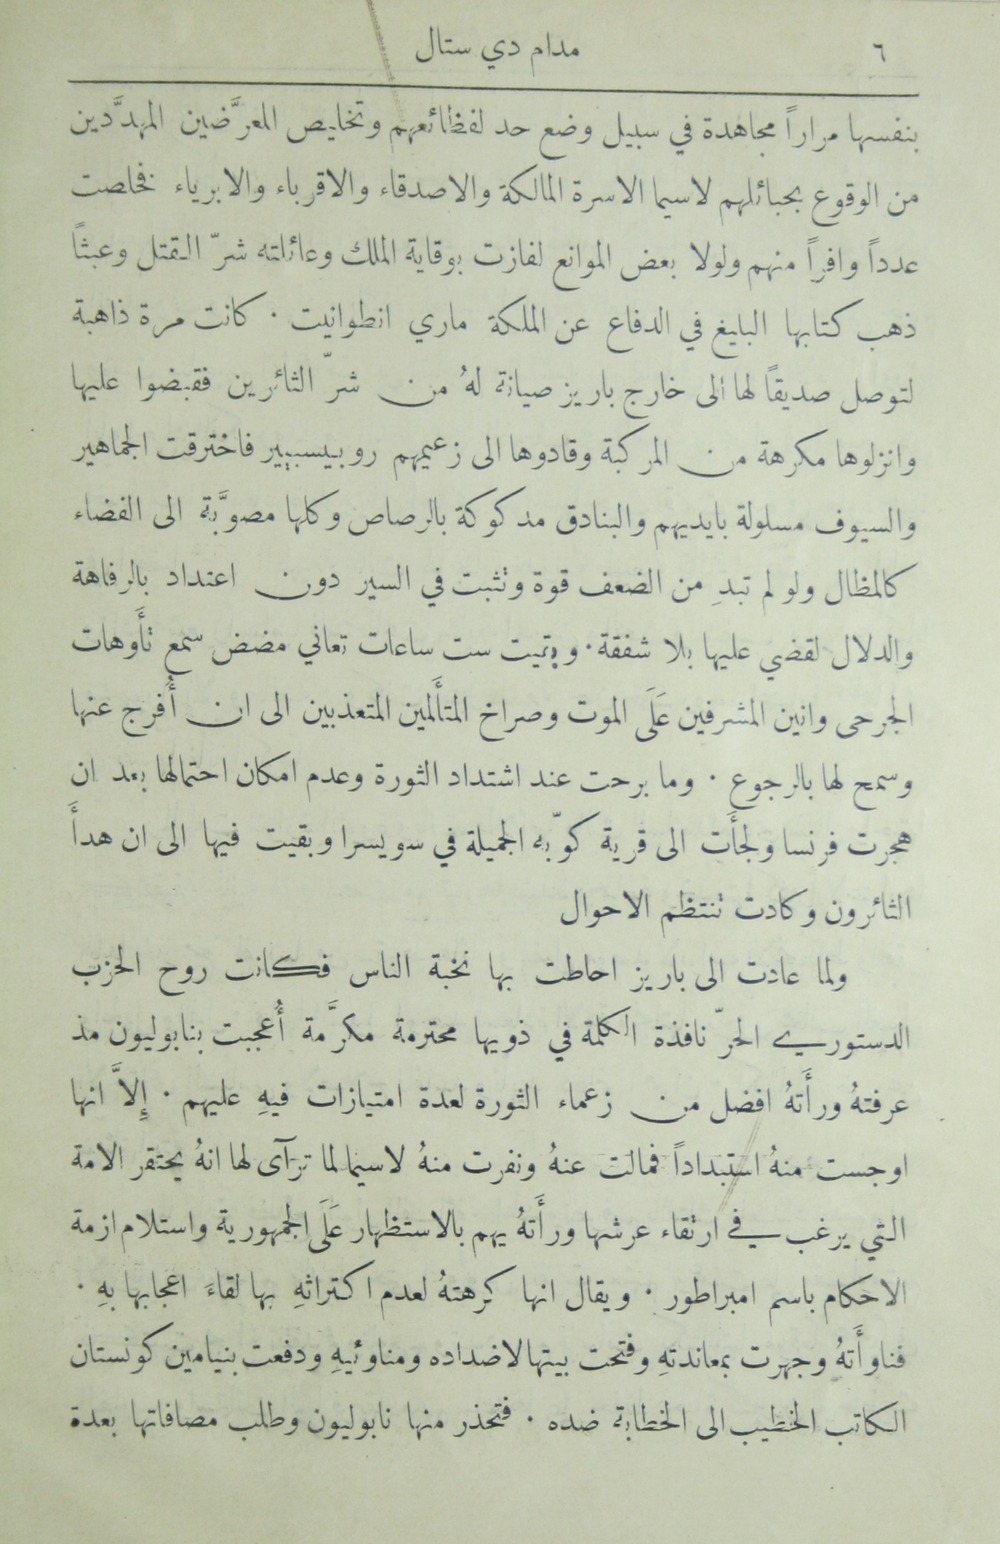 ٦
مدام دي ستال
بنفسها مراراً مجاهدة في سبيل وضع حد لفظائعهم وتخليص المعرَّضين المهدَّدين
من الوقوع بحبائلهم لاسيما الاسرة المالكة والاصدقاء والاقرباء والابرياء فخلصت
عدداً وافراً منهم ولولا بعض الموانع لفازت بوقاية الملك وعائلته شرّ القتل وعبثاً
ذهب كتابها البليغ في الدفاع عن الملكة ماري انطوانيت ٠ كانت مرة ذاهبة
لتوصل صديقاً لها الى خارج باريز صيانة لهُ من شرّ الثائرين فقبضوا عليها
وانزلوها مكرهة من المركبة وقادوها الى زعيمهم روبيسبيير فاخترقت الجماهير
والسيوف مسلولة بايديهم والبنادق مدكوكة بالرصاص وكلها مصوَّبة الى الفضاء
كالمظال ولو لم تبدِ من الضعف قوة وتثبت في السير دون اعتداد بالرفاهة
والدلال لقضي عليها بلا شفقة٠ وبقيت ست ساعات تعاني مضض سمع تأَوهات
الجرحى وانين المشرفين عَلَى الموت وصراخ المتأَلمين المتعذبين الى ان أُفرج عنها
وسمح لها بالرجوع ٠ وما برحت عند اشتداد الثورة وعدم امكان احتمالها بعد ان
هجرت فرنسا ولجأَت الى قرية كوبّه الجميلة في سويسرا وبقيت فيها الى ان هدأَ
الثائرون وكادت تنتظم الاحوال
ولما عادت الى باريز احاطت بها نخبة الناس فكانت روح الحزب
الدستوري الحرّ نافذة الكلمة في ذويها محترمة مكرَّمة أُعجبت بنابوليون مذ
عرفتهُ ورأَتهُ افضل من زعماء الثورة لعدة امتيازات فيهِ عليهم ٠ إِلاَّ انها
اوجست منهُ استبداداً فمالت عنهُ ونفرت منهُ لاسيما لما ترآى لها انهُ يحتقر الامة
التي يرغب في ارتقاء عرشها ورأَتهُ يهم بالاستظهار عَلَى الجمهورية واستلام ازمة
الاحكام باسم امبراطور ٠ ويقال انها كرهتهُ لعدم اكتراثهِ بها لقاءَ اعجابها بهِ ٠
فناوأَتهُ وجهرت بمعاندتهِ وفتحت بيتها لاضداده ومناوئيهِ ودفعت بنيامين كونستان
الكاتب الخطيب الى الخطابة ضده ٠ فتحذر منها نابوليون وطلب مصافاتها بعدة